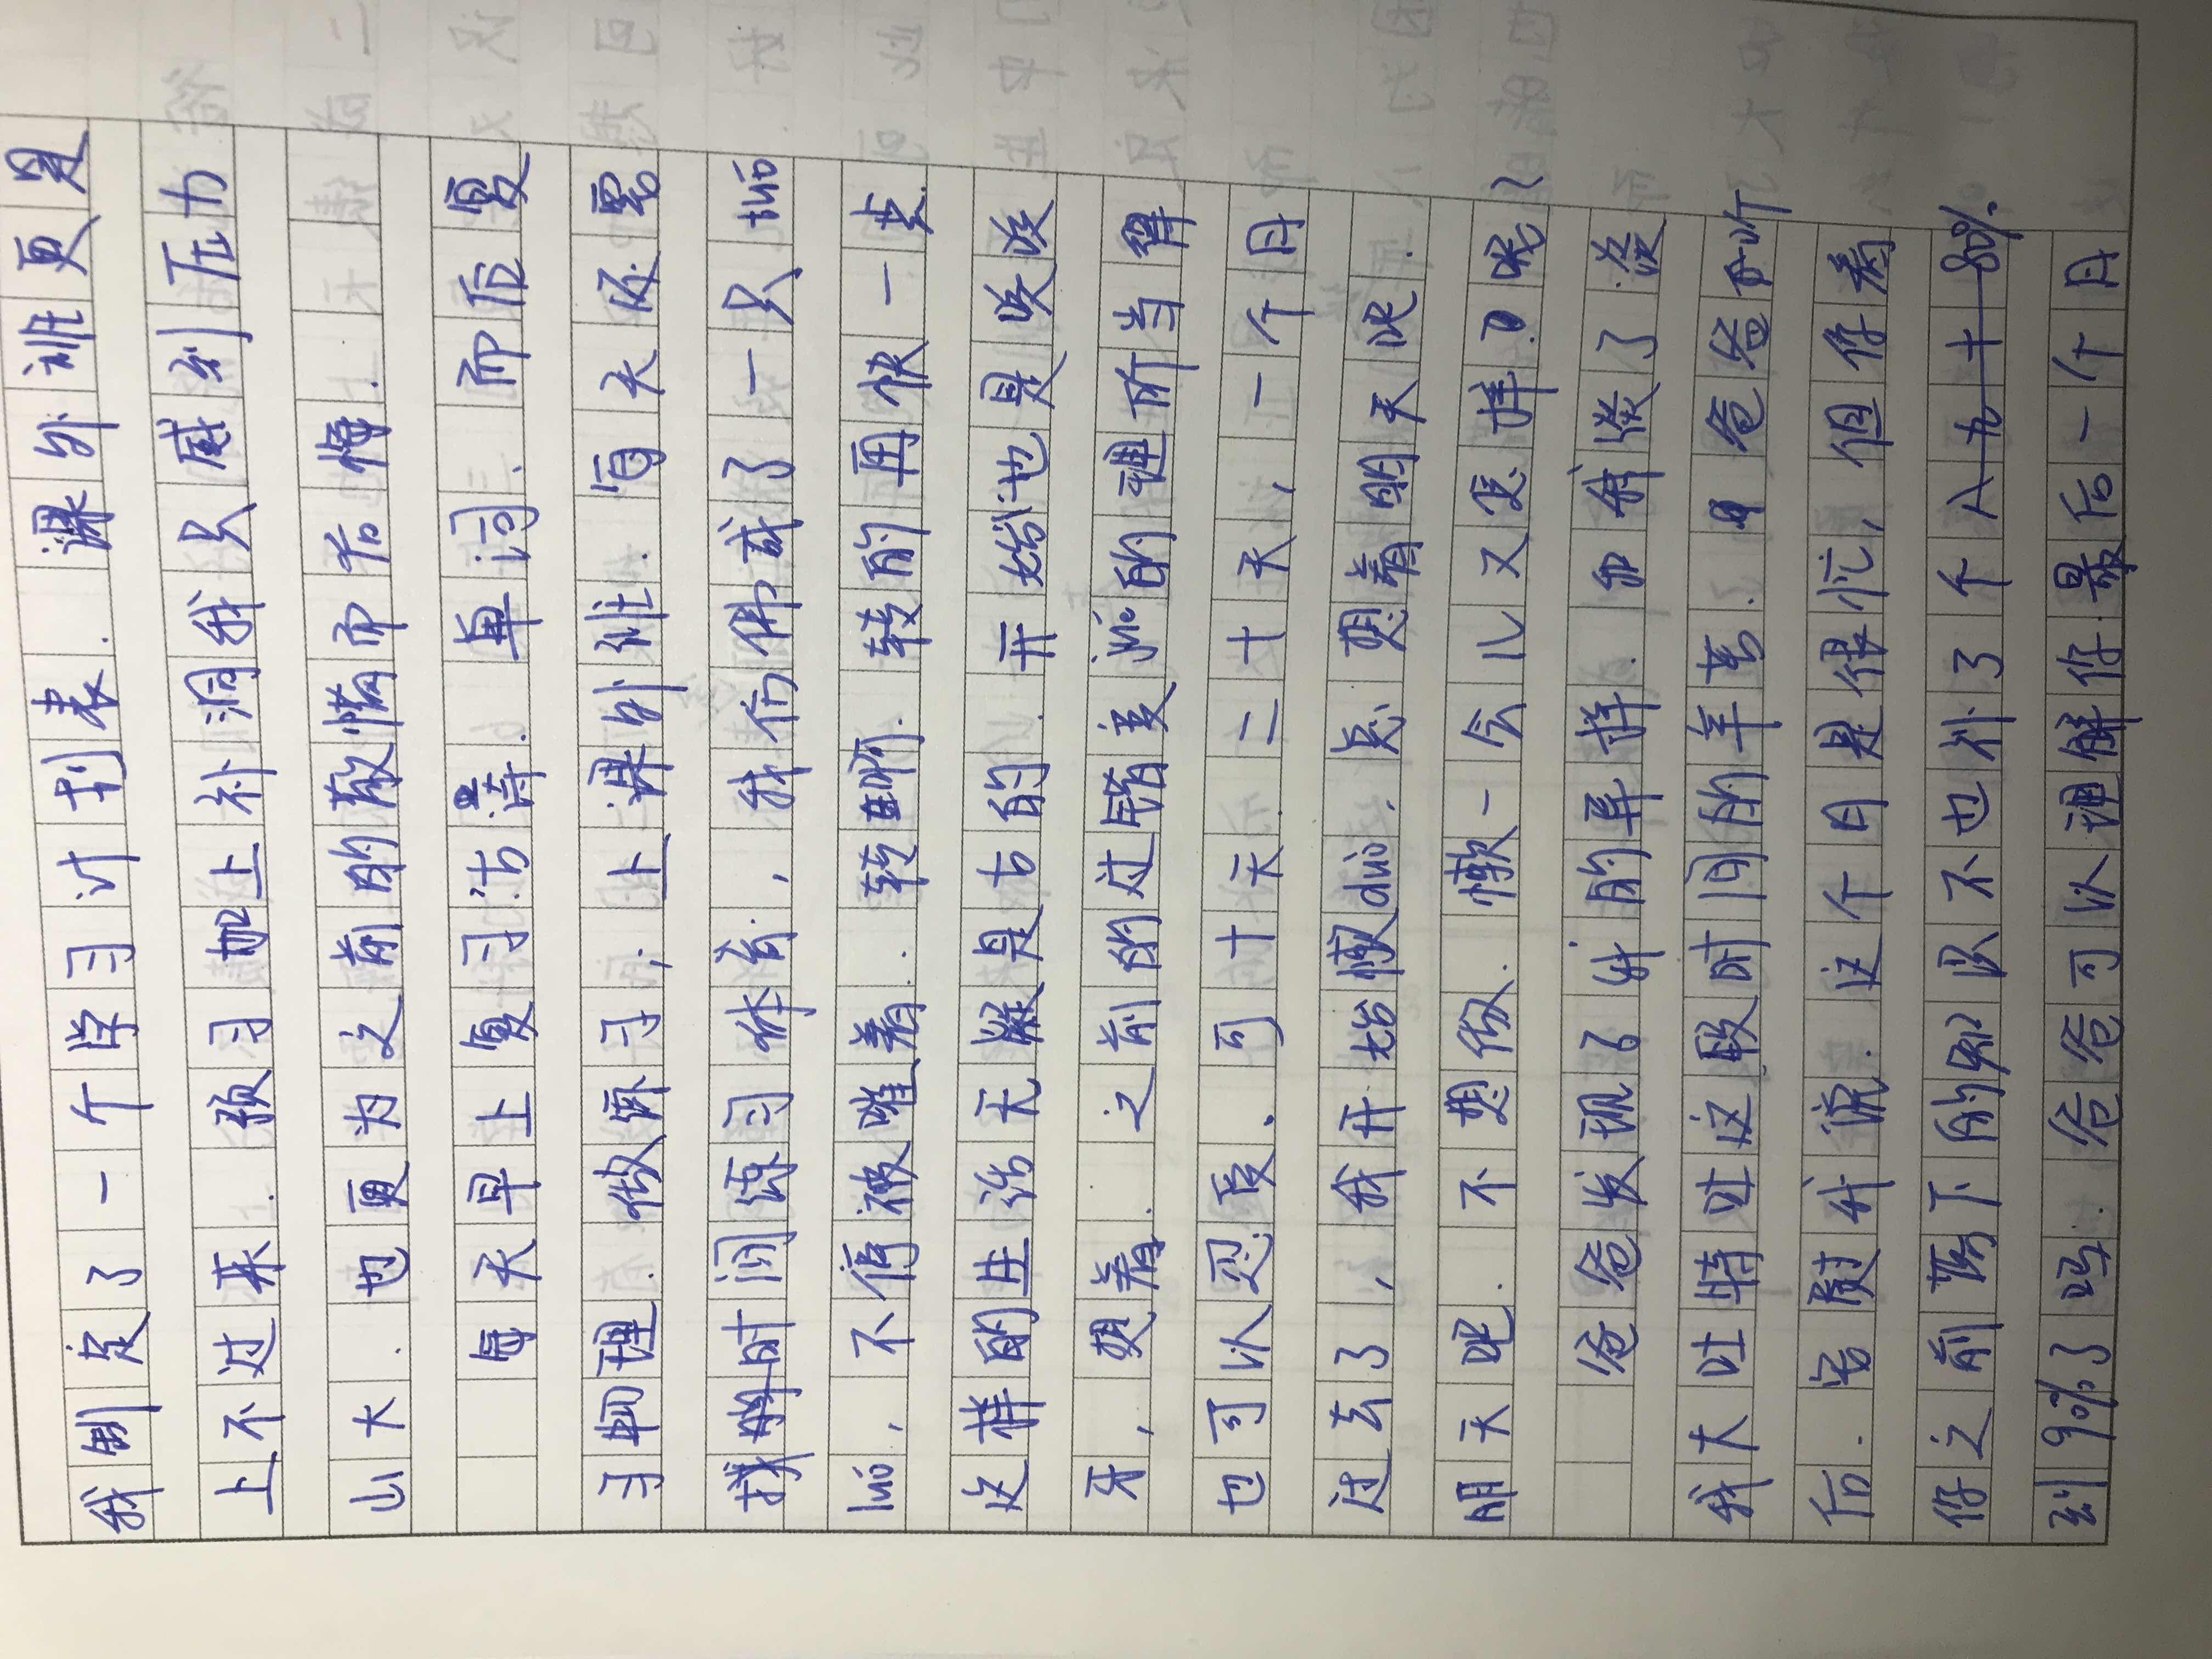 我制定了一个学习计划表.课外班更是
上不过来.预习加上补洞我只感到压力
山大.也更为之前的散惰而后悔.
每天早上复习古诗.单词.而后复
习物理.做练习;上课外班.百天还要
找时间练习体育.,我仿佛成了一只tuó
luó,不停被嘴着..转啊.转的再快一点.
这样的生活无疑是古的.开始也是咬咬
牙,坚着.之前的过错要jiù的理所当得
也可以忍受.可十天.二十天,一个月
过去了,我开始懒duò.总.想着明天吧.
明天吧.不想做.懒一会儿又怎样了呢?
爸爸发现了我的异样.和我谈了谈
我大吐特吐这段时间的辛苦.爸爸听
后.宽慰我说.这个月是很忙,但你看
你之前落下的知识不也补了个八九十80%
到90%了吗.爸爸可以理解你最后一个月